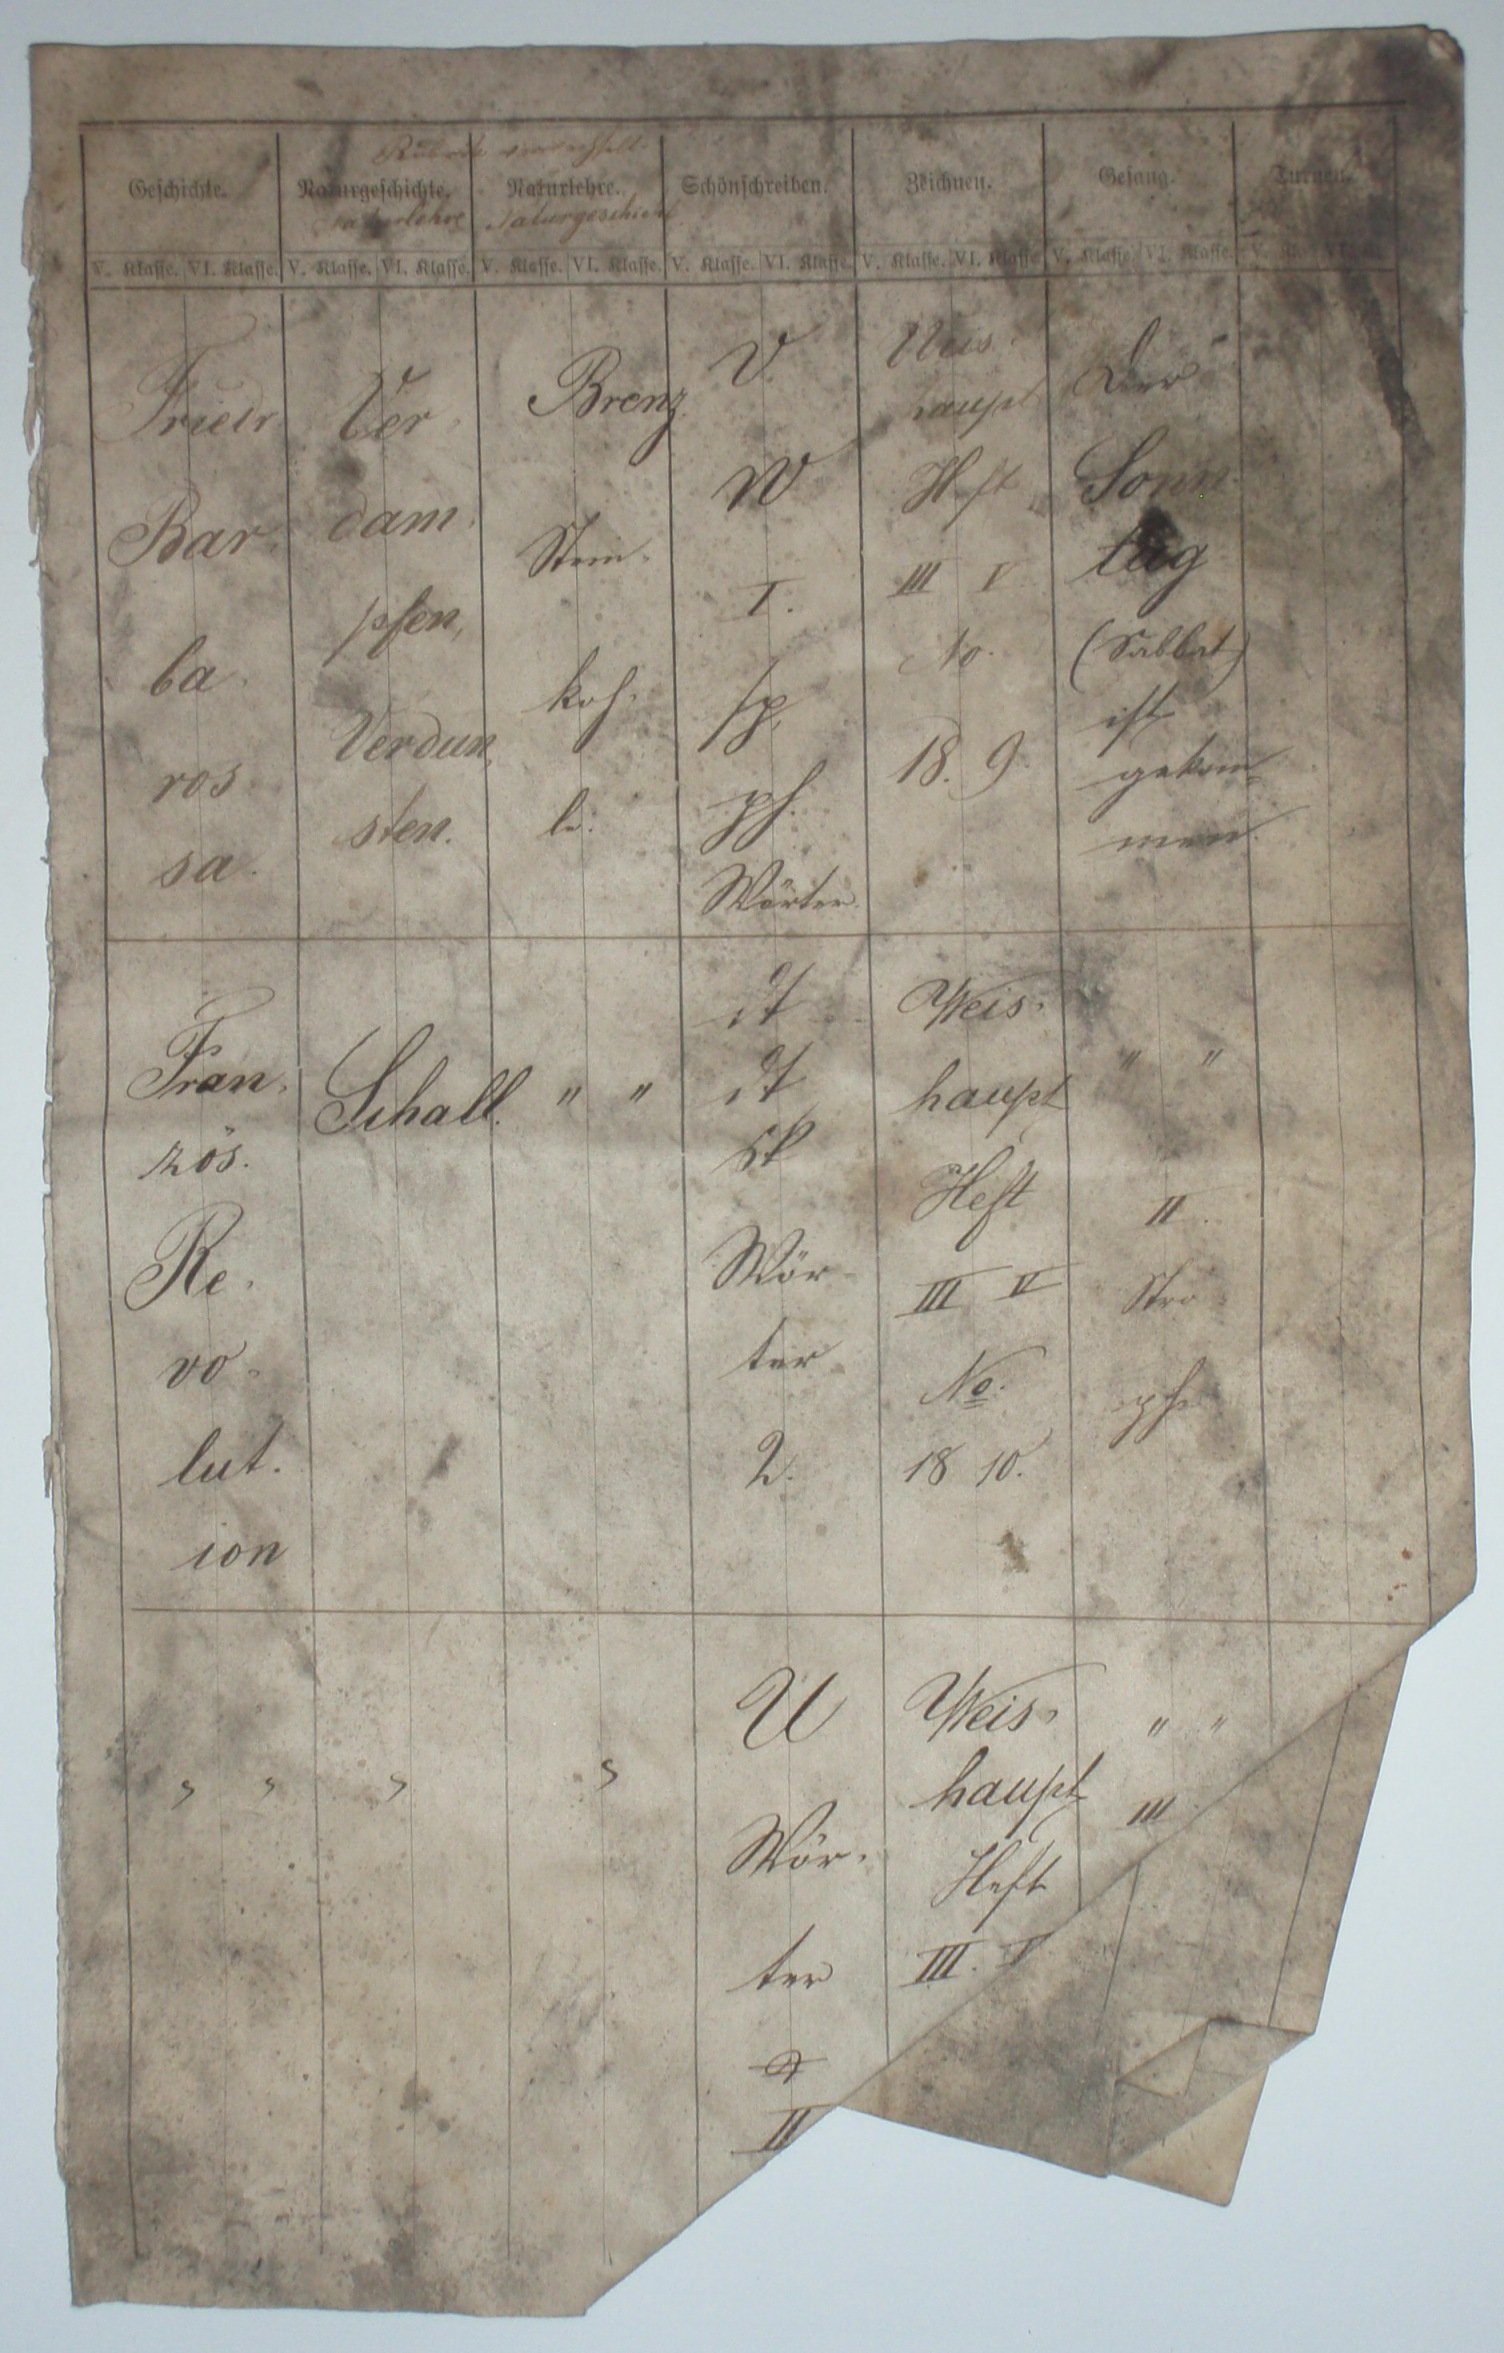 Rubrik verwechselt.
Geschichte. Naturgeschichte. Naturlehre. Schönschreiben. Zeichnen. Gesang. Turnen.
Naturlehre Naturgeschicht
V. Klasse. VI. Klasse. V. Klasse. VI. Klasse. V. Klasse. VI. Klasse. V. Klasse. VI. Klasse. V. Klasse. VI. Klasse. V. Klasse. VI. Klasse. V. Kl
Friedr.
Bar
ba
ros
sa.
Ver
dam
pfen,
Verdun,
sten.
Brenz
Stein
koh
le.
V.
W
I.
sp,
ph.
Wörter.
Weis
haupt
Heft
III V
No.
18. 9.
Der
Sonn
tag
(Sabbat)
ist
gekom=
men.
Fran
zös.
Re
vo
lut.
ion
Schall.
" "
dt
dt
St
Wör
ter
2.
Weis
haupt
Heft
III V
No.
18 10.
" "
II.
Stro
phe
" "
"
"
U
Wör
ter
II
Weis
haupt
Heft
III. V
" "
III